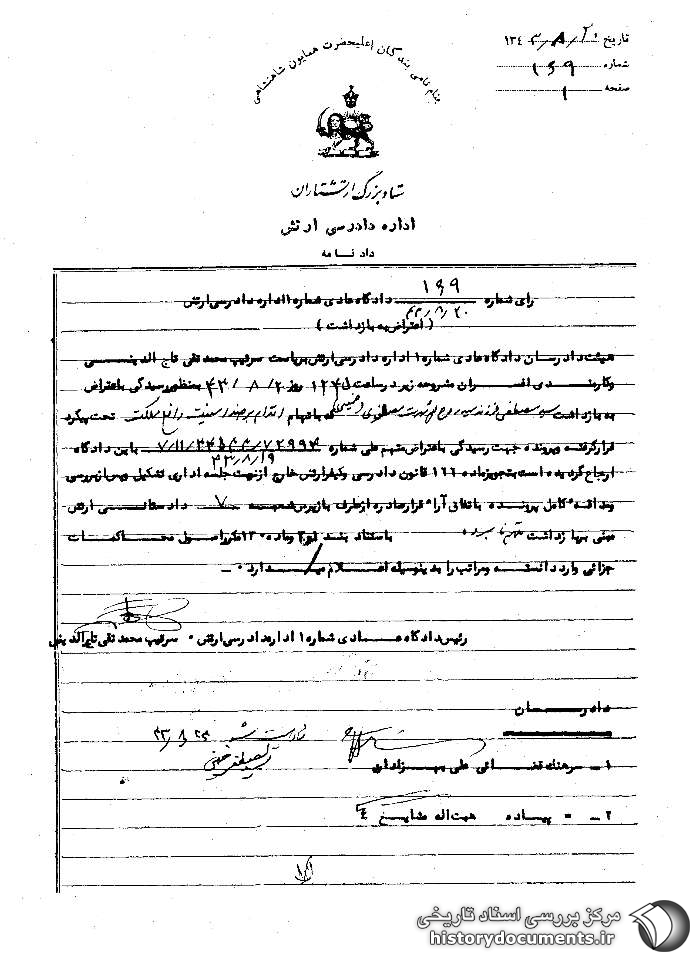 تاریخ ۲۰/۸/۱۳۴۳
شماره ۱۶۹
صفحه ۱
بنام نامی بندگان اعلیحضرت همایون شاهنشاهی
ستاد بزرگ ارتشتاران
اداره دادرسی ارتش
دادنامه
رای شماره ۱۶۹ دادگاه عادی شماره ۱ اداره دادرسی ارتش
۴۳/۸/۲۰
(اعتراض به بازداشت)
هیئت دادرسان دادگاه عادی شماره ۱ اداره دادرسی ارتش بریاست سرتیپ محمد تقی تاج الدینی
وکارمندی افسران مشروحه زیر در ساعت روز ۴۳/۸/۲ بمنظور رسیدگی باعتراض
به بازداشت سید مصطفی فرزند شهرت مصطفوی (خمینی) که باتهام اقدام بر ضد امنیت داخلی مملکت تحت پیگرد
قرار گرفته و پرونده جهت رسیدگی باعتراض متهم طی شماره باین دادگاه
۴۳/۸/۱۹
ارجاع گردیده است بتجویز ماده ۱۶۶ قانون دادرسی و کیفر ارتش خارج از نوبت جلسه اداری تشکیل وپس از بررسی
ومداقه کامل پرونده باتفاق آراء قرار صادره از طرف بازپرس شعبه ۷ دادستانی ارتش
مبنی ببازداشت متهم نامبرده باستناد بند ماده ۱۳۰ مکرر اصول محاکمات
جزائی وارد دانسته ومراتب را بدینوسیله اعلام میدارد ۰ـ
رئیس دادگاه عادی شماره ۱ اداره دادرسی ارتش ۰ سرتیپ محمد تقی تاج الدینی
دادرسان
رؤیت شد ۴۳/۸/۲۴
مصطفی خمینی
۱ـ سرهنگ قضائی علی بهزادیان
۲ـ = پیاده همت اله مشایخ
مرکز بررسی اسناد تاریخی
historydocuments.ir